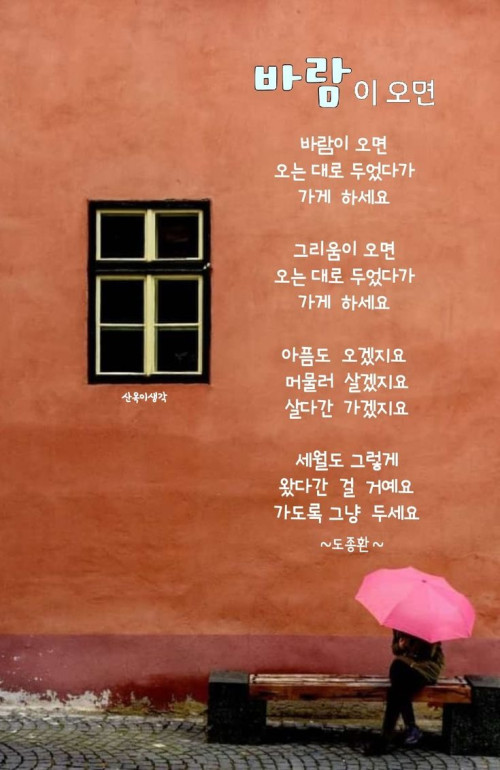 바람이 오면
바람이 오면
오는 대로 두었다가
가게 하세요
그리움이 오면
오는 대로 두었다가
가게 하세요
아픔도 오겠지요
머물러 살겠지요
살다간 가겠지요
세월도 그렇게
왔다간 걸 거예요
가도록 그냥 두세요
~도종환~
산목이생각